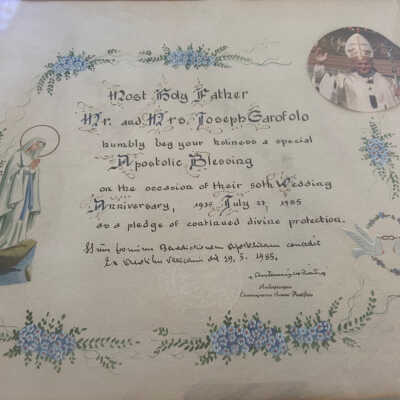 Most Holy Father
Mr. and Mrs. Joseph Garofolo
humbly beg your holiness a special
Apostolic Blessing
on the occasion of their 50th Wedding
Anniversary, 1935 July 27, 1985
as a pledge of continued divine protection.
Benedictionem
Ex Vaticanis die 29. 5. 1985.